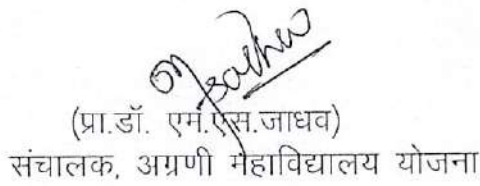 (प्रा.डॉ. एम.एस.जाधव)
संचालक, अग्रणी महाविद्यालय योजना